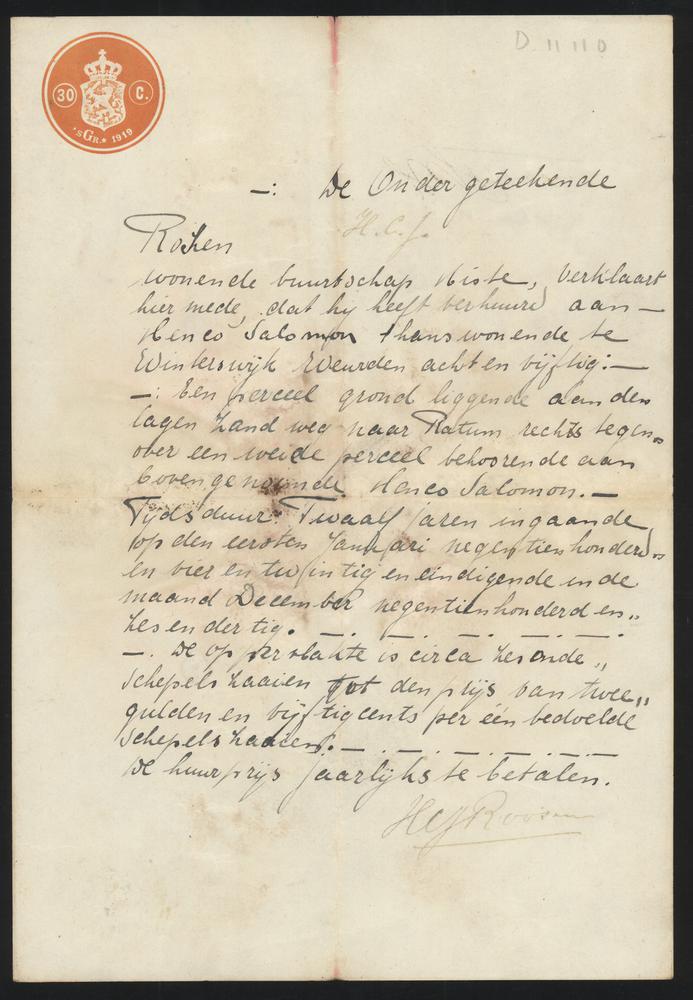 D 11 11 0
30 C.
'sGR.* 1919
-: De Ondergeteekende
H. C. J.
Rozen
wonende buurtschap Miste, verklaart
hier mede, dat hy heeft verhuurd aan -
Heneo Salomon thans wonende te
Winterswijk Weurden acht en vijftig: -
-: Een perceel grond liggende aan den
lagen Zand weg naar Ratum rechts tegen"
over een weide perceel behoorende aan
bovengenoemde Heneo Salomon. -
Tijdsduur: Twaalf jaren ingaande
op den eersten Januari negentienhonderd"
en vier en twintig en eindigende in de
maand December negentienhonderd en"
zes en dertig. -. -. -. -. -.
-. De oppervlakte is circa zes en de"
schepels zaaien tot den prijs van twee"
gulden en vijftig cents per één bedoelde
schepels zaaien. -. -. -. -. -
De huurprijs jaarlijks te betalen.
HCJ Roosen